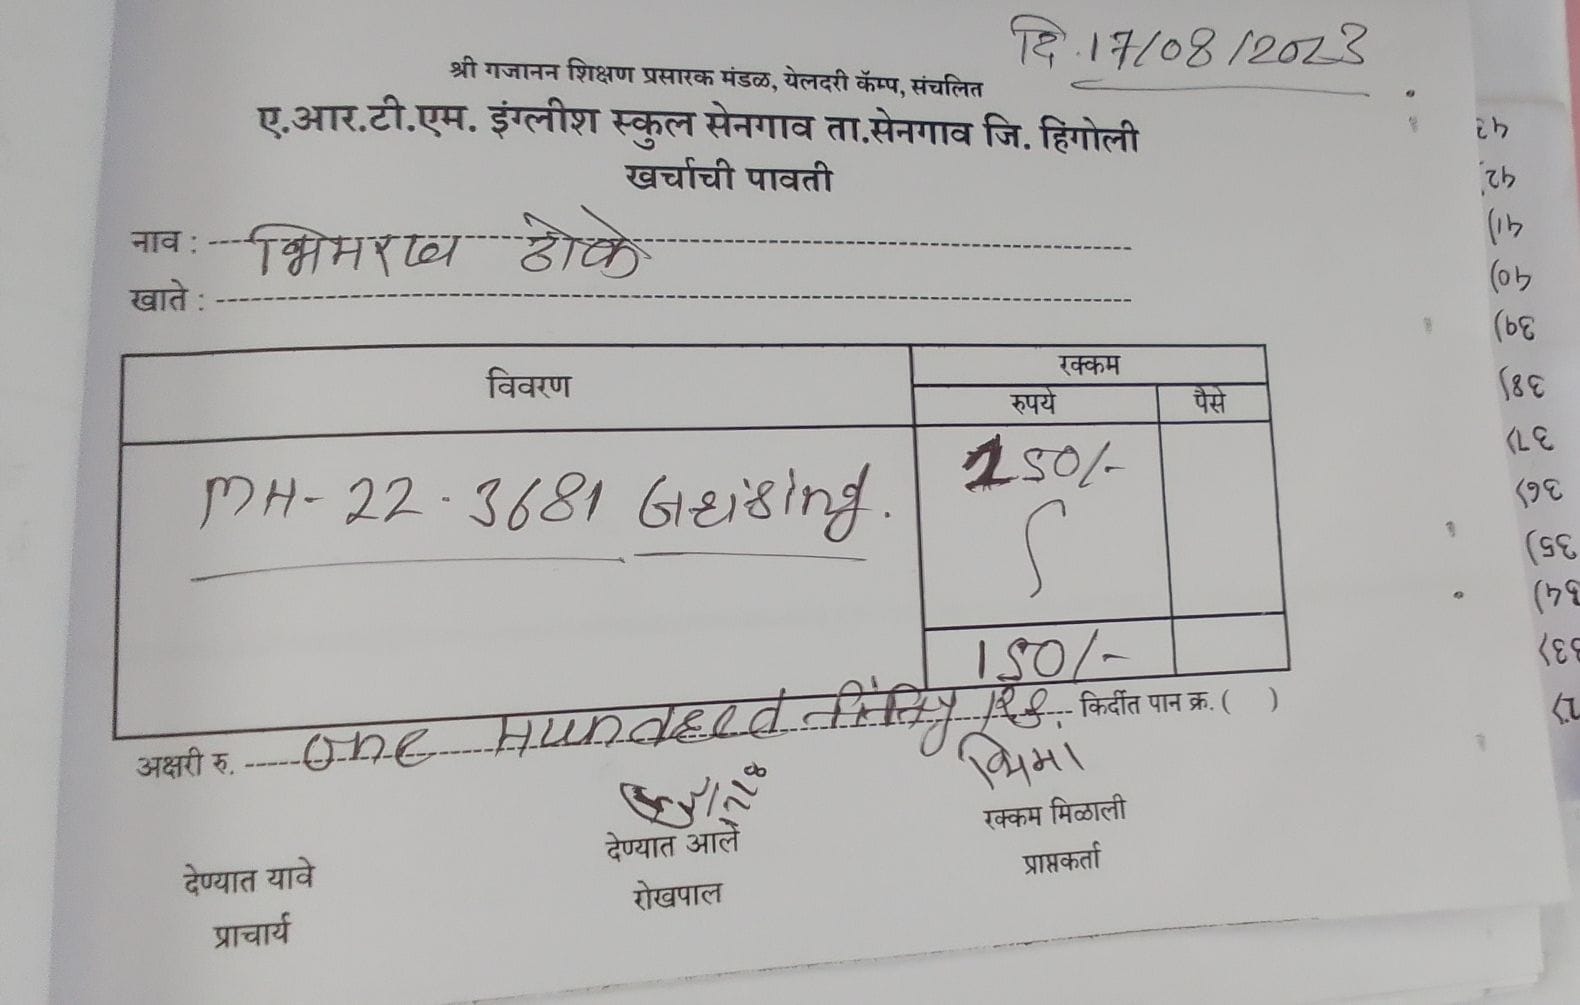 दि. 17/08/2023
श्री गजानन शिक्षण प्रसारक मंडळ, येलदरी कॅम्प, संचलित
ए.आर.टी.एम. इंग्लीश स्कुल सेनगाव ता.सेनगाव जि. हिंगोली
खर्चाची पावती
नाव : भिमराव ठोके
खाते :
विवरण
रक्कम
रुपये पैसे
MH-22-3681 150/-
150/-
अक्षरी रु. One Hundred Rs. किर्दीत पान क्र. ( )
भिमा
देण्यात आले
रक्कम मिळाली
देण्यात यावे
रोखपाल
प्राप्तकर्ता
प्राचार्य
43
42
41)
40)
39)
38)
37)
36)
35)
34)
33)